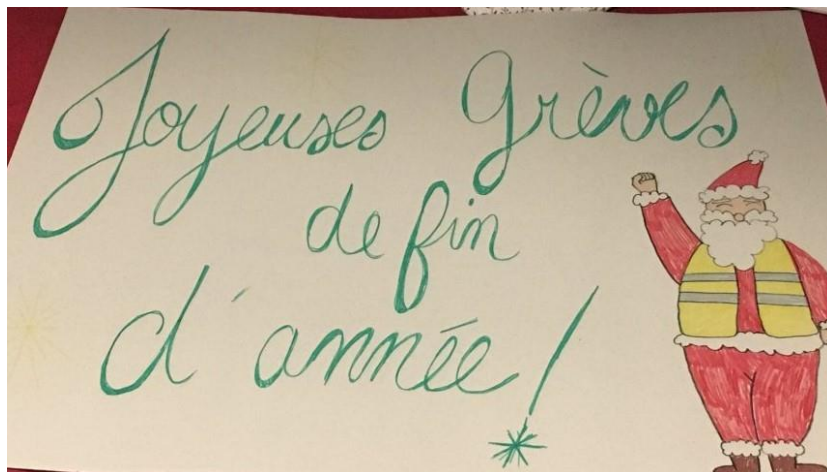 Joyeuses Grèves
de fin
d'année !